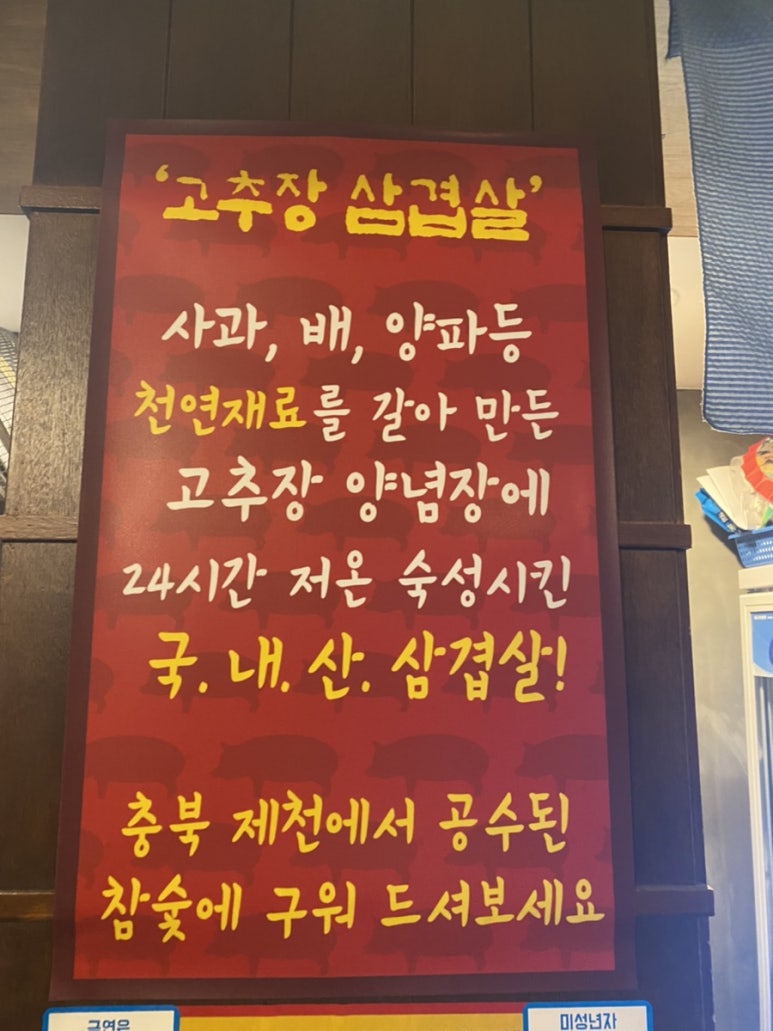 '고추장 삼겹살'
사과, 배, 양파등
천연재료를 갈아 만든
고추장 양념장에
24시간 저온 숙성시킨
국. 내. 산. 삼겹살!
충북 제천에서 공수된
참숯에 구워 드셔보세요
금연은 미성년자